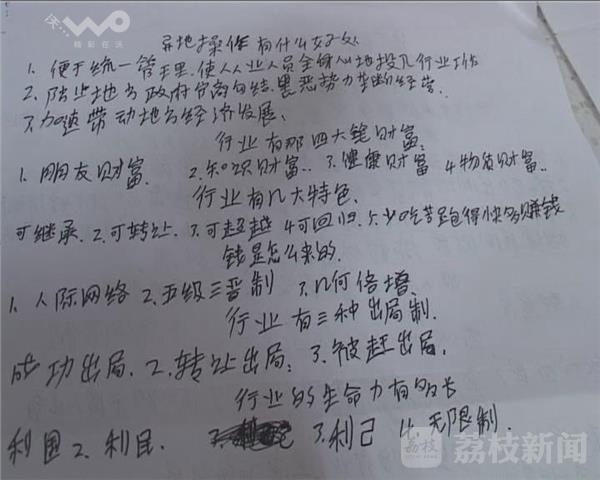 WO
精彩在沃
异地操作有什么好处
1. 便于统一管理.使从业人员全身心地投入行业工作
2. 防止地方政府官商勾结.黑恶势力垄断经营.
3.加速带动地方经济发展.
行业有那四大笔财富.
1.朋友财富. 2.知识财富.. 3.健康财富 4.物质财富..
行业有几大特色.
可继承.2.可转让.3.可超越 4可回归.5.少吃苦跑得快多赚钱
钱是怎么来的.
1.人际网络 2.五级三晋制 3.几何倍增.
行业有三种出局制.
成功出局.2.转让出局.3.被赶出局.
行业的生命力有多长
利国 2.利民. 3.利己 4.无限制.
荔枝 荔枝新闻